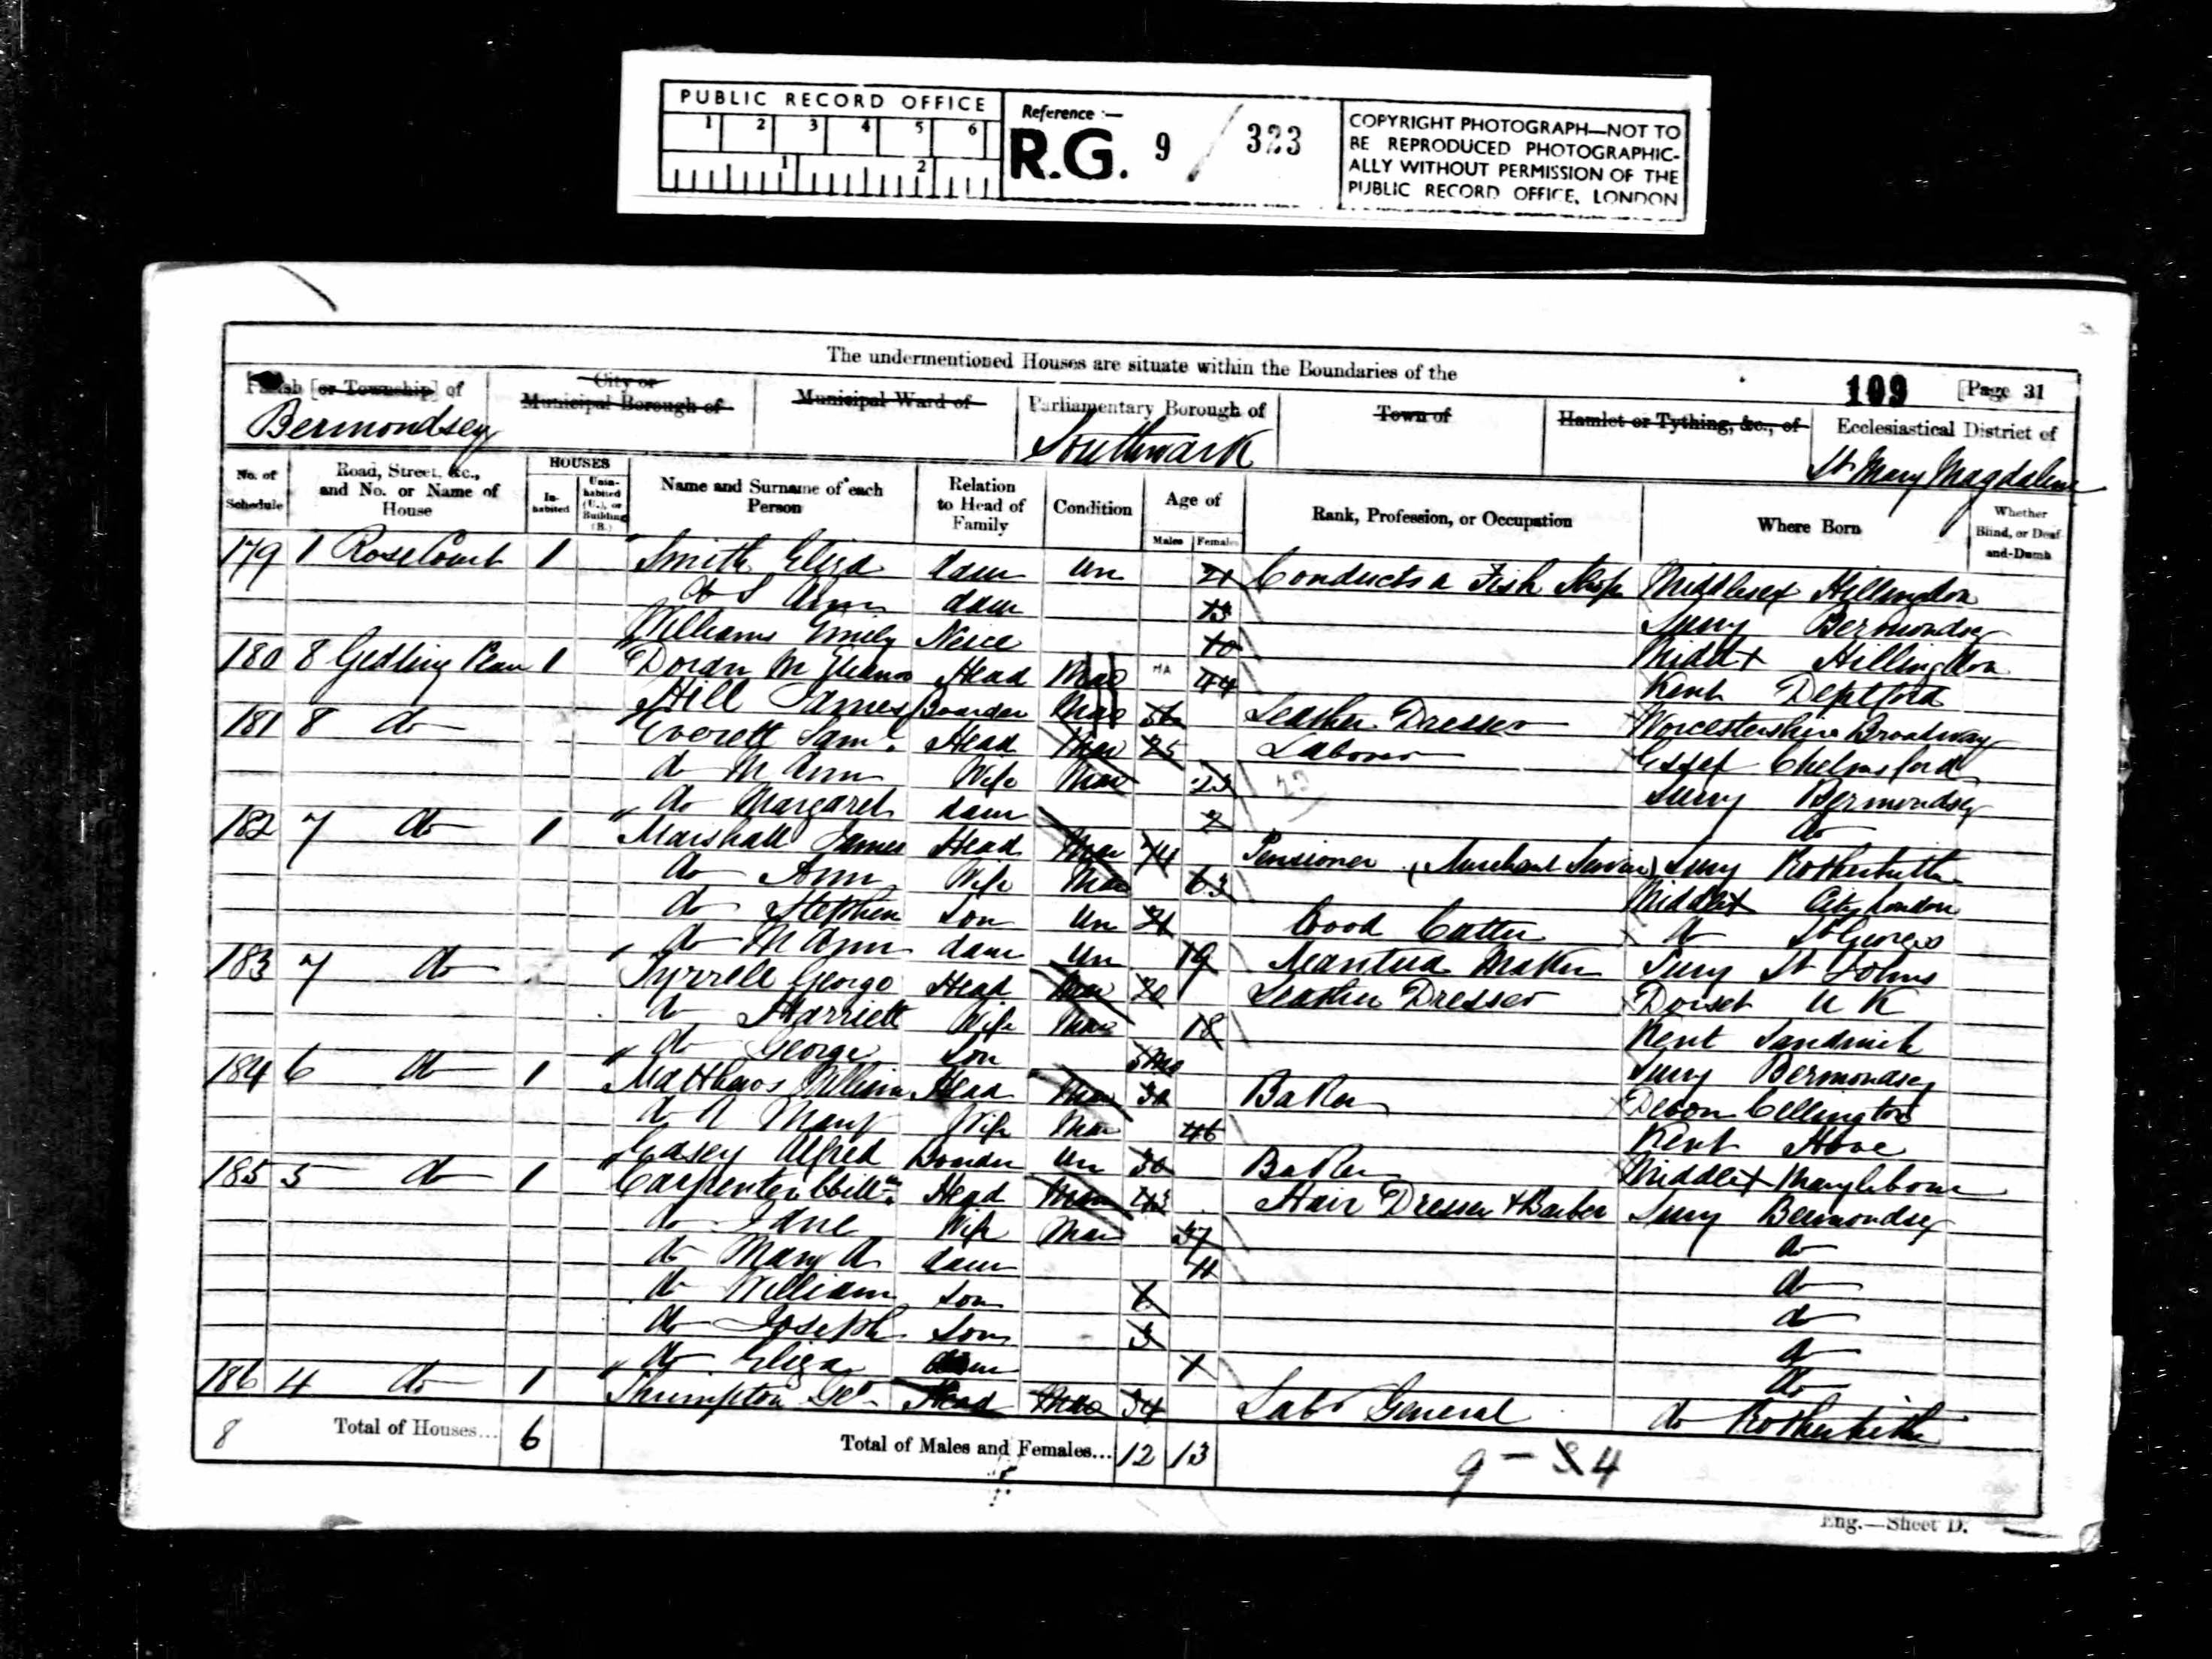 PUBLIC RECORD OFFICE
1 2 3 4 5 6
1 2
Reference :—
R.G. 9 / 323
COPYRIGHT PHOTOGRAPH—NOT TO
BE REPRODUCED PHOTOGRAPHIC-
ALLY WITHOUT PERMISSION OF THE
PUBLIC RECORD OFFICE, LONDON
The undermentioned Houses are situate within the Boundaries of the
109 [Page 31
Parish [or Township] of
Bermondsey
City or
Municipal Borough of
Municipal Ward of
Parliamentary Borough of
Southwark
Town of
Hamlet or Tything, &c., of
Ecclesiastical District of
St Mary Magdalene
No. of
Schedule
Road, Street, &c.,
and No. or Name of
House
HOUSES
In-
habited
Unin-
habited
(U.), or
Building
(B.)
Name and Surname of each
Person
Relation
to Head of
Family
Condition
Age of
Males Females
Rank, Profession, or Occupation
Where Born
Whether
Blind, or Deaf-
and-Dumb
179 1 Rose Court 1 Smith Eliza daur Un 21 Conducts a Fish Shop Middlesex Hillingdon
do S Ann daur 13 Surry Bermondsey
Williams Emily Neice 10 Middx Hillingdon
180 8 Gedling 1 M Eleanor Head Mar 44 Kent Deptford
Hill James Boarder Mar Leather Dresser Worcestershire Broadway
181 8 do Everett Saml Head Mar 25 Laborer Essex Chelmsford
do M Ann Wife Mar 23 Surry Bermondsey
do Margaret daur 2 do
182 7 do 1 Marshall James Head Mar 74 Pensioner (Merchant Service) Surry Rotherhithe
do Ann Wife Mar 63 Middlx City London
do Stephen Son Un 21 Wood Cutter do St Georges
do M Ann daur Un 19 Mantua Maker Surry St Johns
183 7 do Tyrrell George Head Mar 20 Leather Dresser Dorset U K
do Harriett Wife Mar 18 Kent Sandwich
do George Son Surry Bermondsey
184 6 do 1 Matthews William Head Mar Baker Devon
do A Mary Wife Mar 46 Kent
Casey Alfred Boarder Un 30 Baker Middlex Marylebone
185 5 do 1 Carpenter Willm Head Mar 43 Hair Dresser & Barber Surry Bermondsey
do Jane Wife Mar 37 do
do Mary A daur 11 do
do William Son do
do Joseph Son 3 do
do Eliza daur 1 do
186 4 do 1 Thumpton Geo Head Mar 34 Labr General do Rotherhithe
8 Total of Houses... 6 Total of Males and Females... 12 13
9 - 4
Eng.—Sheet D.